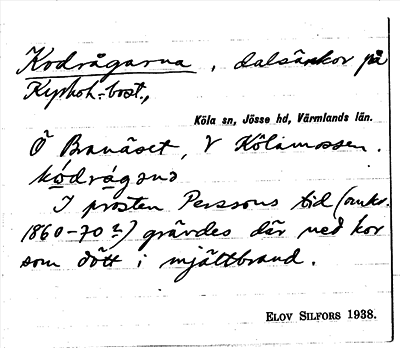 Kodrågarna, dalsänkor på
Kyrkoh.-bost.,
Köla sn, Jösse hd, Värmlands län.
Ö Branäset, V Kölamossen.
kodrågana
I prosten Perssons tid (omkr.
1860-70?) grävdes där ned kor
som dött i mjältbrand.
ELOV SILFORS 1938.